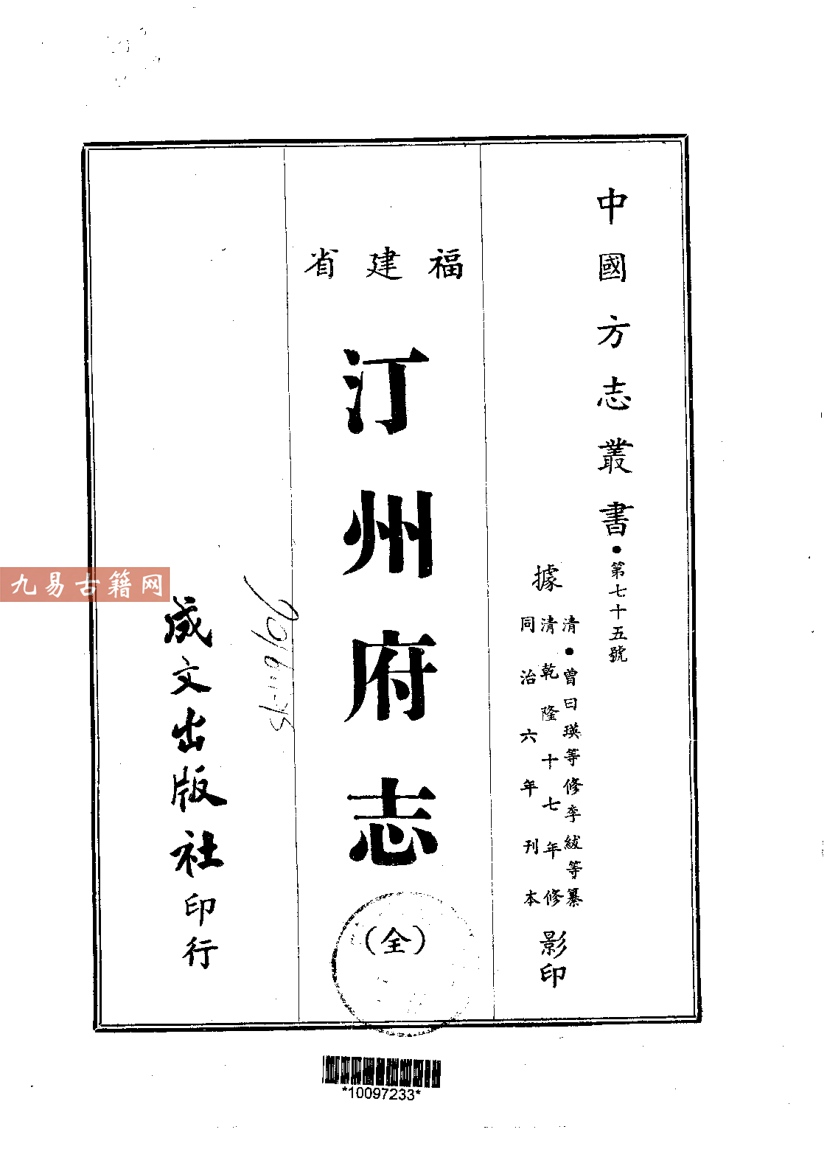 中國方志叢書·第七十五號
據
清·曾曰瑛等修李紱等纂
清乾隆十七年修
同治六年刊本
影印
福建省
汀州府志
(全)
成文出版社印行
九易古籍网
*10097233*